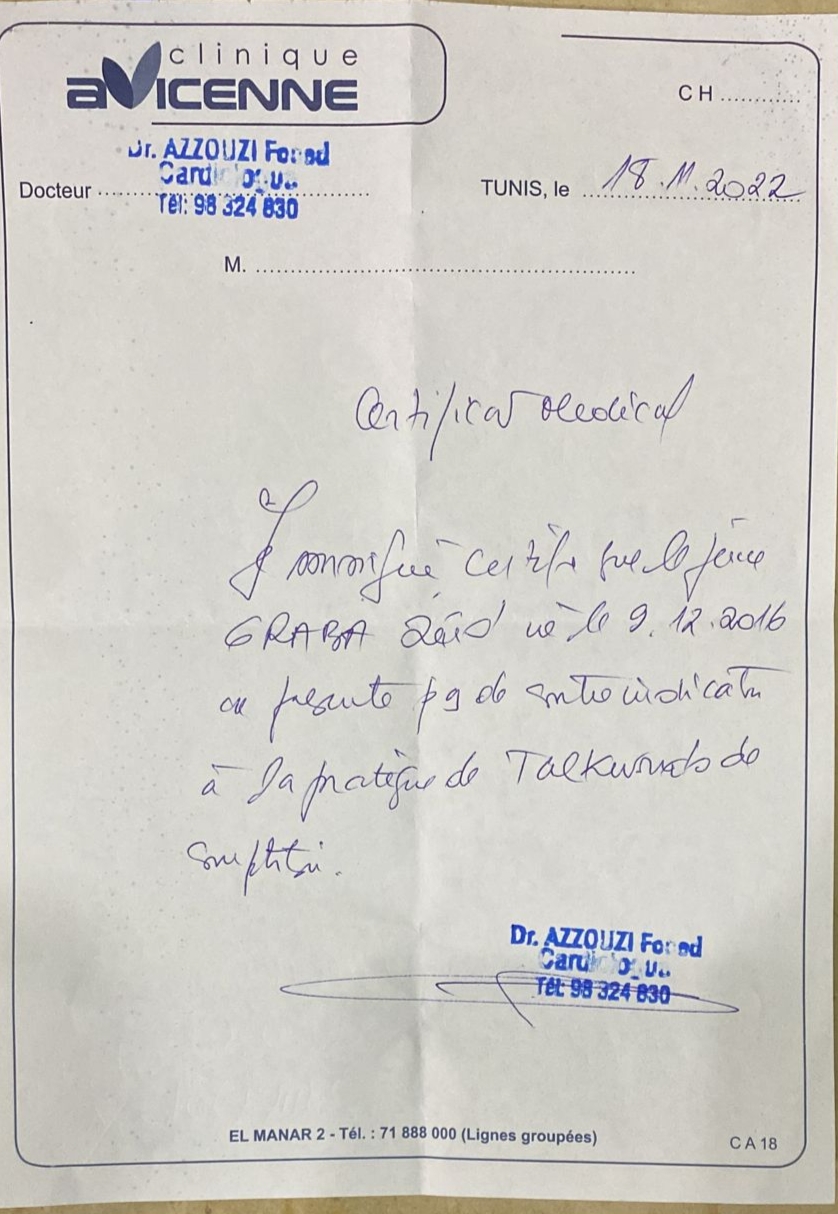 clinique
aVICENNE
CH ............
Dr. AZZOUZI Foued
Cardiologue
Docteur ........................................
Tél: 98 324 830
TUNIS, le 18.11.2022
M. ................................................................
Certificat Medical
Je soussigné certifie que le jeune
GRABA Zéid né le 9.12.2016
ne présente pas de contre indication
à la pratique de Taekwondo de
compétition.
Dr. AZZOUZI Foued
Cardiologue
Tél: 98 324 830
EL MANAR 2 - Tél. : 71 888 000 (Lignes groupées)
CA 18